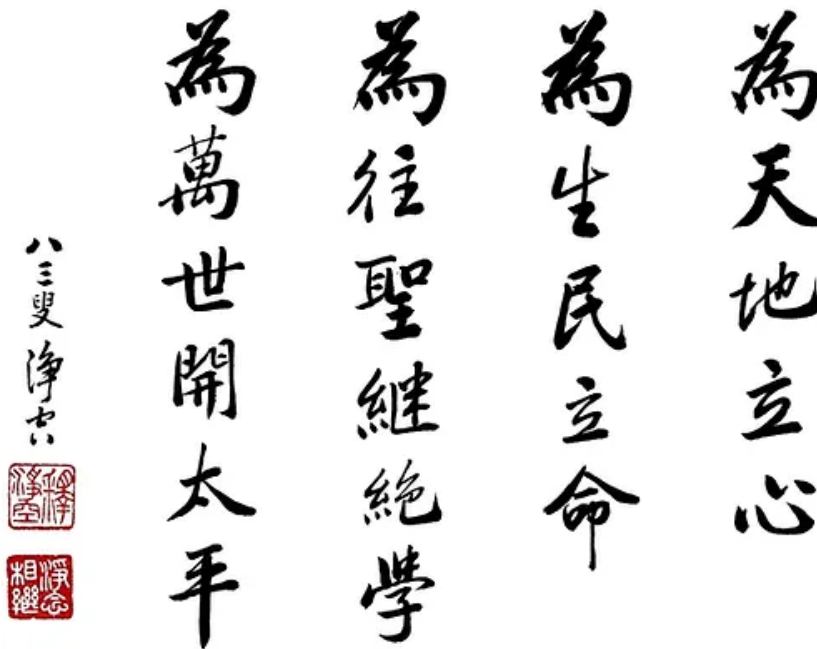 為天地立心
為生民立命
為往聖継絶學
為萬世開太平
八三叟 淨空
釋淨空
淨念相繼